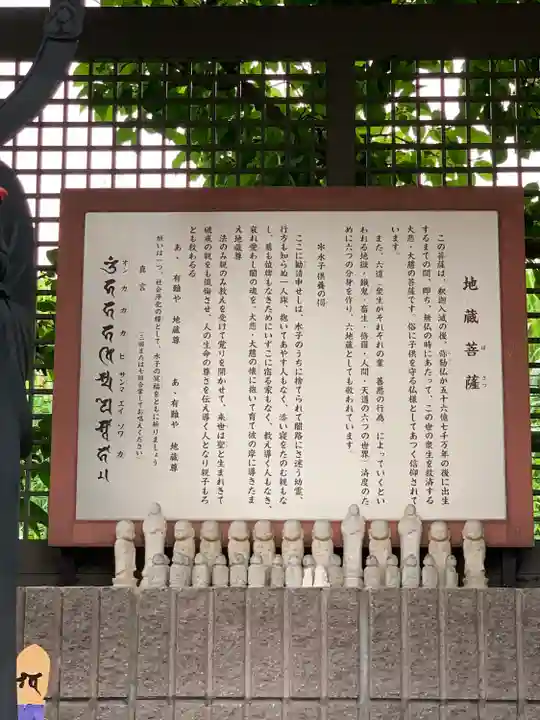 地蔵菩薩
ぼさつ
この菩薩は、釈迦入滅の後、弥勒仏が五十六億七千万年の後に出生
するまでの間、即ち、無仏の時にあたって、この世の衆生を救済する
大悲・大慈の菩薩です。俗に子供を守る仏様としてあつく信仰されて
います。
また、六道（衆生がそれぞれの業 善悪の行為 によっていくとい
われる地獄・餓鬼・畜生・修羅・人間・天道の六つの世界）済度のた
めに六つの分身を作り、六地蔵としても敬われています。
＊水子供養の偈
ここに勧請申せしは、水子のうちに捨てられて闇路にさ迷う幼霊、
行方も知らぬ一人旅、抱いてあやす人もなく、添い寝をたのむ親もな
し、墓も位牌もなきためにいずこに宿る家もなく、教え導く人もなき、
哀れ愛わし闇の魂を、大悲・大慈の懐に抱いて育て彼の岸に導きたま
え地蔵尊
法のみ親のみ教えを受けて覚りを開かせて、来世は聖と生まれきて
破戒の親をも懺悔させ、人の生命の尊さを伝え導く人となり親子もろ
とも救わるる
あゝ有難や 地蔵尊 あゝ有難や 地蔵尊
願いは一つ、社会浄化の糧として、水子の冥福をともに祈りましょう
真言
（三回または七回合掌してお唱えください）
オン カカカ ビ サンマ エイ ソワ カ